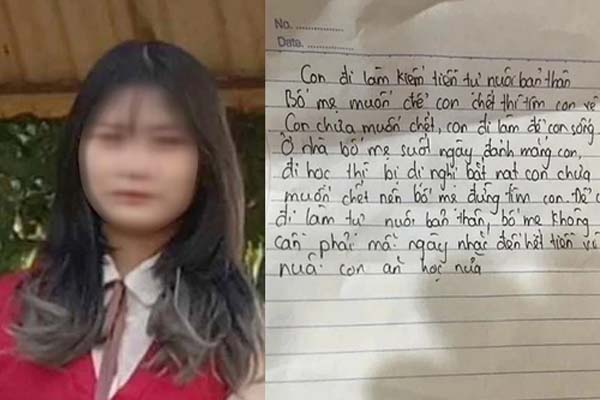 No. ...............
Date. ...............
Con đi làm kiếm tiền tự nuôi bản thân
Bố mẹ muốn để con chết thì tìm con về
Con chưa muốn chết, con đi làm để con sống
Ở nhà bố mẹ suốt ngày đánh mắng con,
đi học thì bị dị nghị bắt nạt con chưa
muốn chết nên bố mẹ đừng tìm con. Để c
đi làm tự nuôi bản thân, bố mẹ không
cần phải mỗi ngày nhắc đến hết tiền vì
nuôi con ăn học nữa